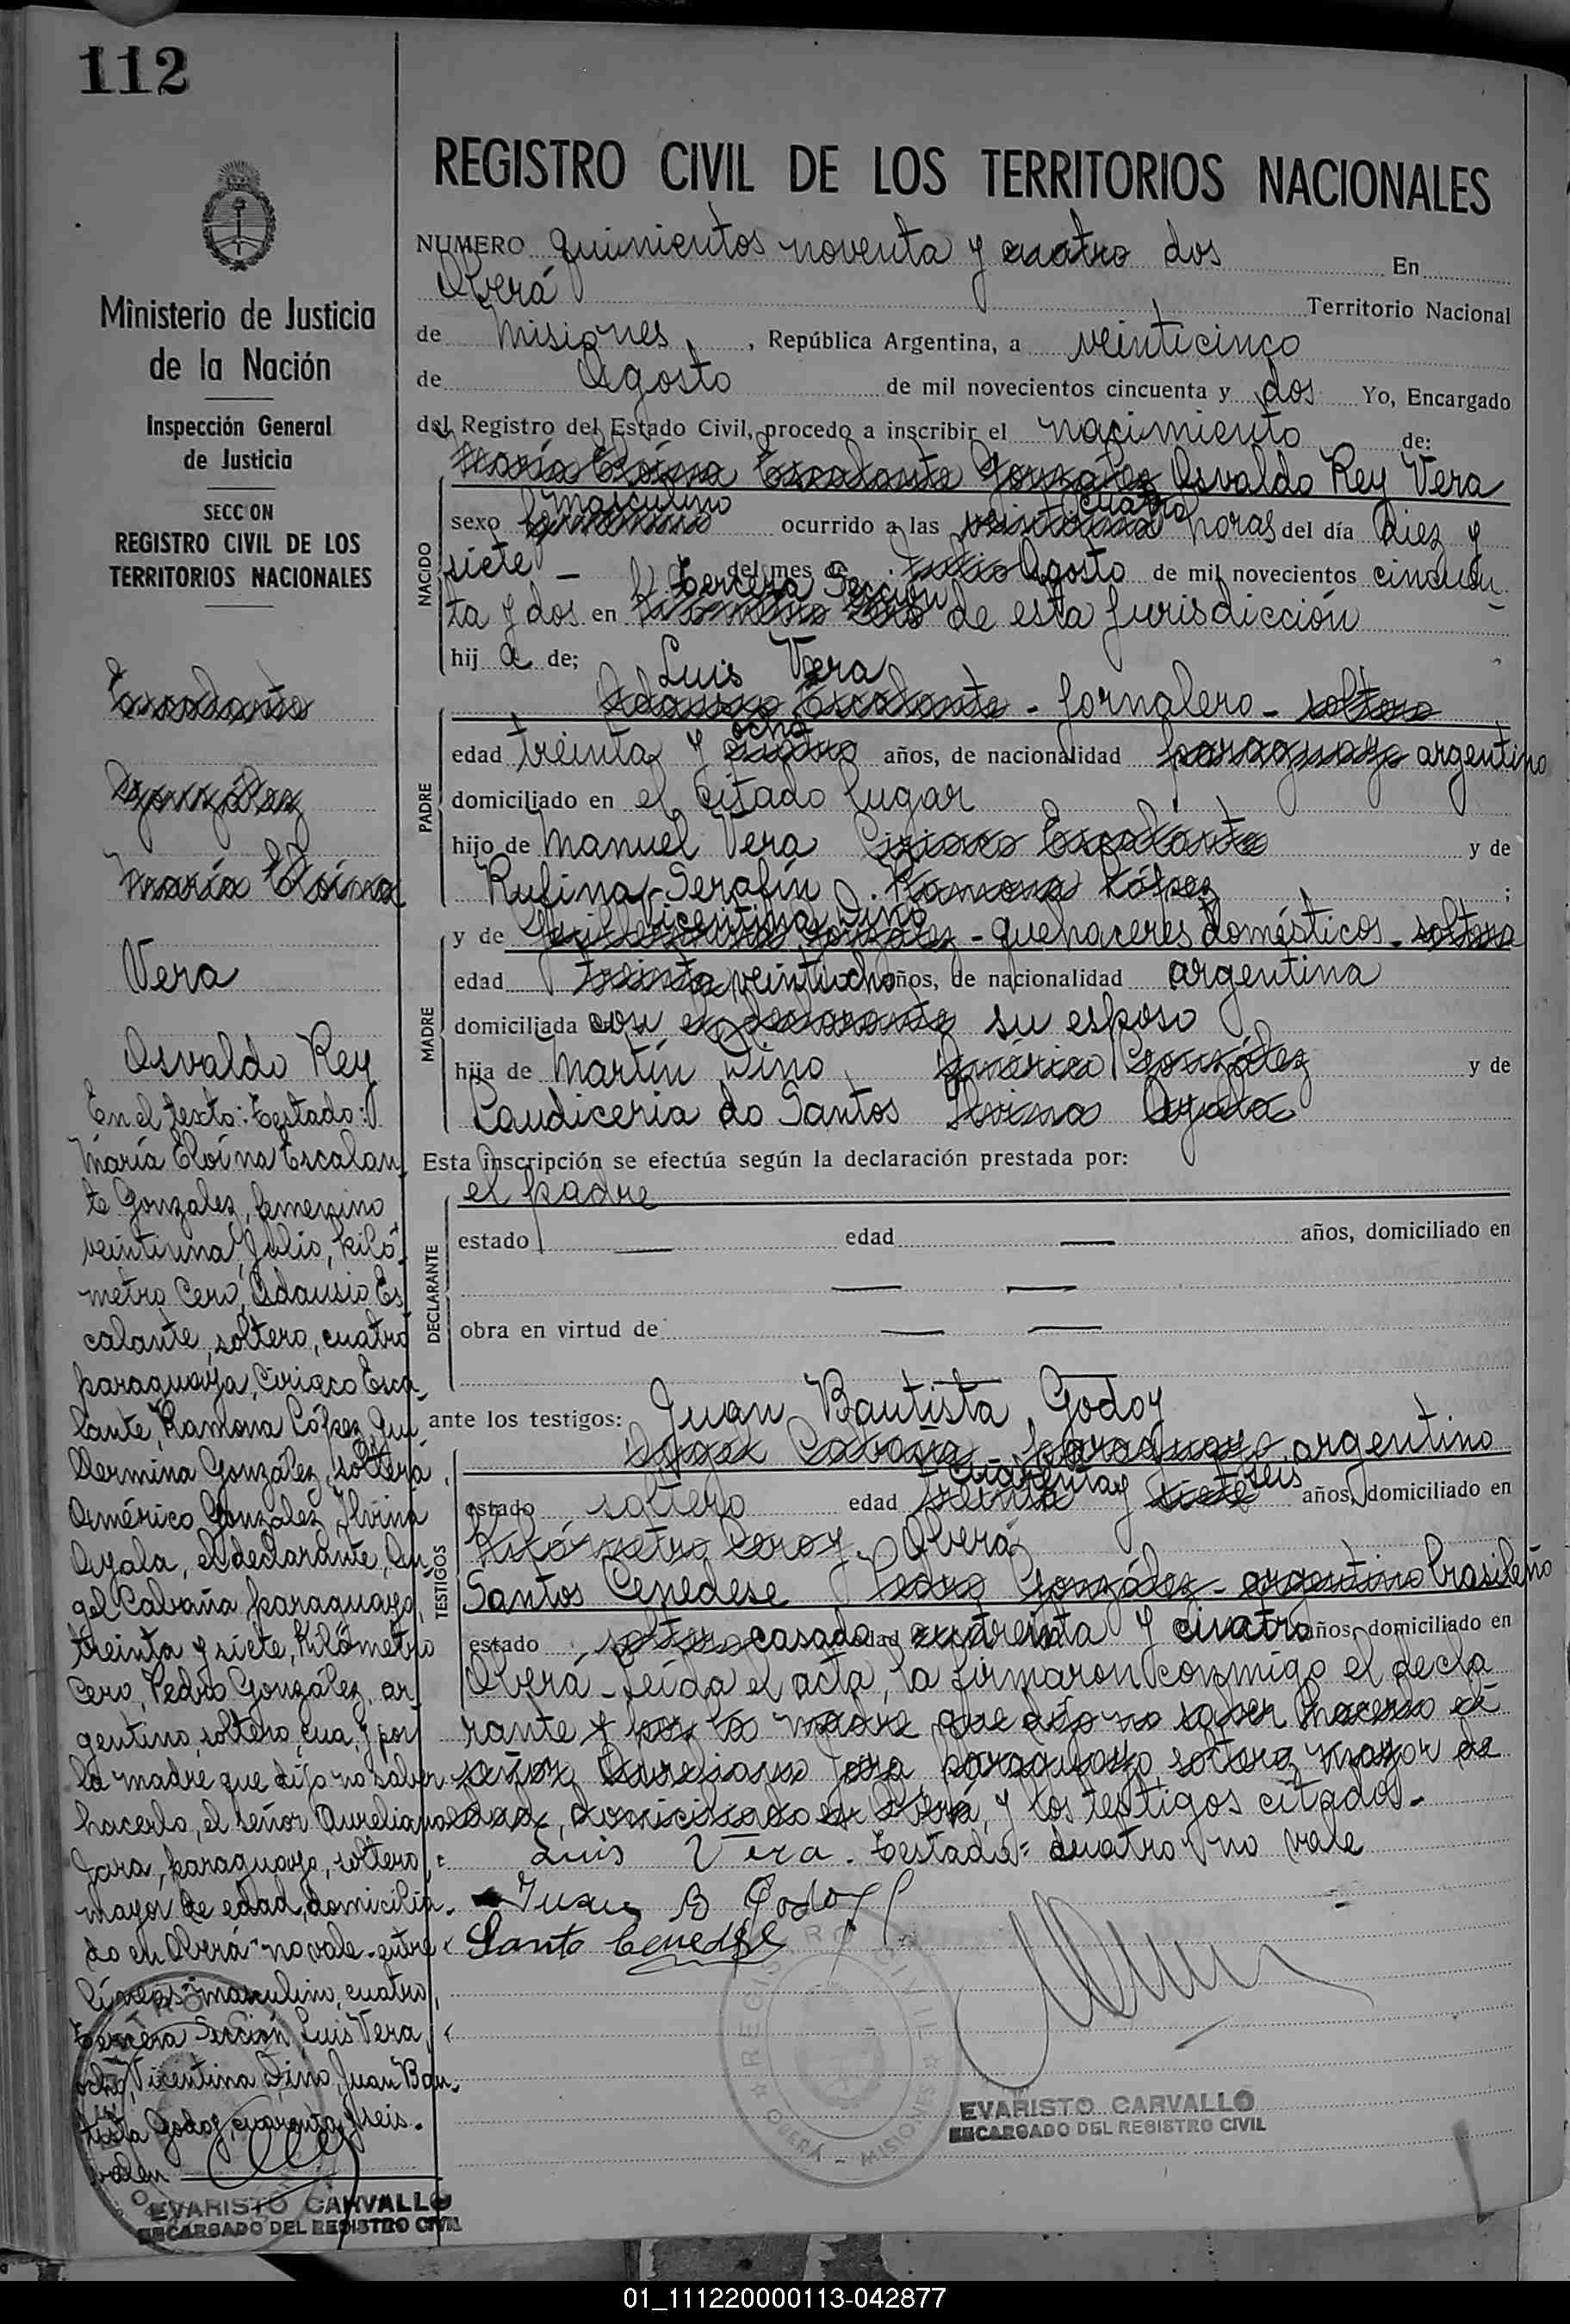 112
Ministerio de Justicia
de la Nación
Inspección General
de Justicia
SECC ON
REGISTRO CIVIL DE LOS
TERRITORIOS NACIONALES
Escalante
González
María Eloína
Vera
Osvaldo Rey
En el texto: Testado:
María Eloína Escalan
te Gonzalez, femenino
veintiuna, Julio, kiló
metro Cero, Adausio Es
calante, soltero, cuatro
paraguaya, Ciriaco Esca
lante, Ramona López, Gui
llermina González, soltera
Américo González, Ilvina
Ayala, el declarante, An
gel Cabaña paraguayo,
treinta y siete, Kilómetro
Cero, Pedro González, ar
gentino, soltero, cua, y por
la madre que dijo no saber
hacerlo, el señor Aureliano
Jara, paraguayo, soltero,
mayor de edad, domicilia
do en Oberá - no vale - entre
líneas: masculino, cuatro,
tercera Sección, Luis Vera,
ocho, Vicentina Lino, Juan Bau
tista Godoy, cuarenta y seis.
valen
EVARISTO CARVALLO
ENCARGADO DEL REGISTRO CIVIL
REGISTRO CIVIL DE LOS TERRITORIOS NACIONALES
NUMERO quinientos noventa y cuatro dos En
Oberá Territorio Nacional
de Misiones, República Argentina, a veinticinco
de Agosto de mil novecientos cincuenta y dos Yo, Encargado
del Registro del Estado Civil, procedo a inscribir el nacimiento de:
María Eloína Escalante González Osvaldo Rey Vera
NACIDO
masculino cuatro
sexo femenino ocurrido a las veintiuna horas del día diez y
siete - del mes de Julio Agosto de mil novecientos cincuen
tercera Sección
ta y dos en kilómetro cero de esta jurisdicción
hij a de;
Luis Vera
PADRE
Adausio Escalante - jornalero - soltero
ocho
edad treinta y cuatro años, de nacionalidad paraguaya argentino
domiciliado en el citado lugar
hijo de Manuel Vera Ciriaco Escalante y de
Rufina Serafín Ramona López ;
Vicentina Lino
MADRE
y de Guillermina González - quehaceres domésticos - soltera
edad treinta veintiocho años, de nacionalidad argentina
domiciliada con el declarante su esposo
hija de Martín Lino Américo González y de
Caudiceria do Santos Ilvina Ayala
Esta inscripción se efectúa según la declaración prestada por:
DECLARANTE
el padre
estado edad años, domiciliado en
obra en virtud de
ante los testigos: Juan Bautista Godoy
TESTIGOS
Angel Cabaña - paraguayo argentino
cuarenta y seis
estado soltero edad treinta y siete años, domiciliado en
Kilómetro Cero y Oberá
Santos Cenedese Pedro González - argentino brasileño
estado soltero casado edad cua treinta y cuatro años, domiciliado en
Oberá - Leída el acta, la firmaron conmigo el decla
rante y por la madre que dijo no saber hacerlo el
señor Aureliano Jara, paraguayo soltero, mayor de
edad, domiciliado en Oberá, y los testigos citados.
Luis Vera. Testado: cuatro no vale
Juan B Godoy
Santo Cenedese
REGISTRO CIVIL
OBERÁ - MISIONES
EVARISTO CARVALLO
ENCARGADO DEL REGISTRO CIVIL
01_111220000113-042877